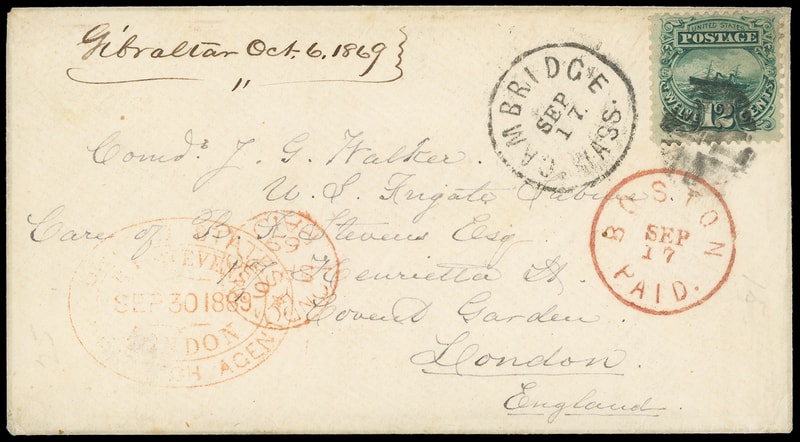 Gibraltar Oct. 6. 1869
"
CAMBRIDGE
SEP
17.
MASS.
UNITED STATES
POSTAGE
12
TWELVE CENTS
Comdr J. G. Walker.
U. S. Frigate Sabine
Care of B. F. Stevens Esq
Henrietta St.
Covent Garden
London.
England.
BOSTON
SEP
17
PAID.
STEVENS
SEP 30 1869
LONDON
AGENT
PAID